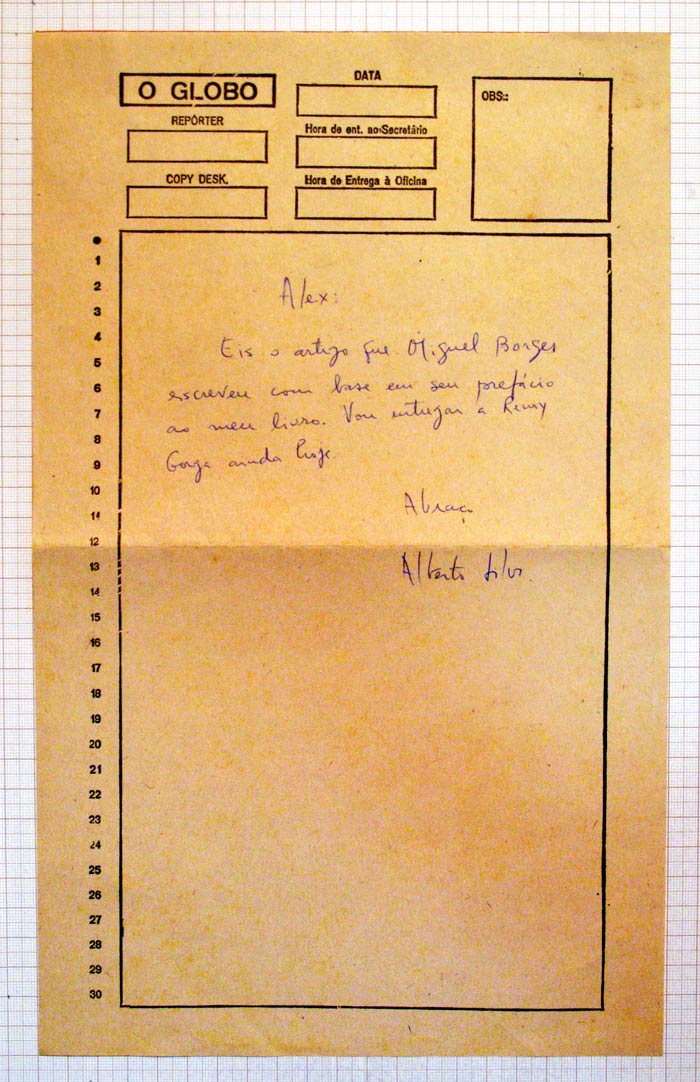 O GLOBO
DATA
OBS.:
REPÓRTER
Hora de ent. ao Secretário
COPY DESK.
Hora de Entrega à Oficina
1
2
3
4
5
6
7
8
9
10
11
12
13
14
15
16
17
18
19
20
21
22
23
24
25
26
27
28
29
30
Alex:
Eis o artigo que Miguel Borges
escreveu com base em seu prefácio
ao meu livro. Vou entregar a Remy
Gorga ainda hoje.
Abraço
Alberto Silva.